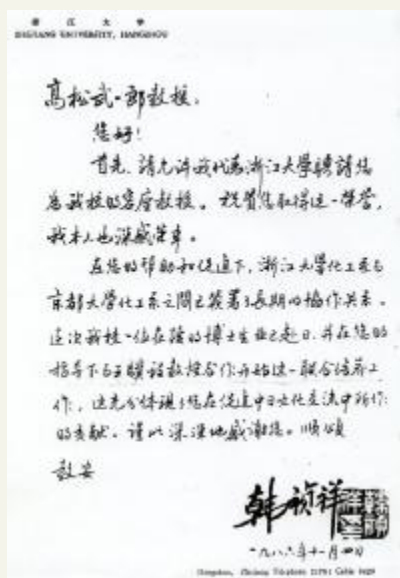 浙江大学
ZHEJIANG UNIVERSITY, HANGZHOU
高松武一郎教授,
您好!
首先,请允许我代表浙江大学聘請您
为我校的客座教授。祝贺您取得这一荣誉,
我本人也深感荣幸。
在您的帮助和促进下,浙江大学化工系与
京都大学化工系之間已签署了長期的協作关系。
这次我校一位在读的博士生业已赴日,并在您的
指导下与王骥程教授合作开始这一联合培养工
作,这充分体现了您在促进中日文化交流中所作
的贡献。谨以深深地感谢您。顺颂
教安
韩祯祥
一九八六年十一月四日
Hangzhou, Zhejiang Telephone